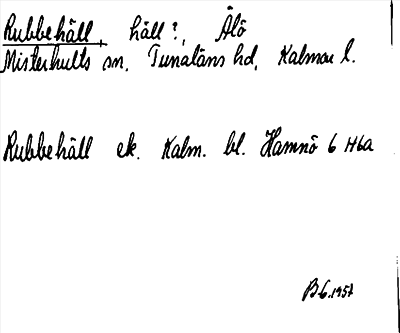 Rubbehäll, häll?, Älö
Misterhults sn, Tunaläns hd, Kalmar l.
Rubbehäll ek. Kalm. bl. Hamnö 6 H6a
1957